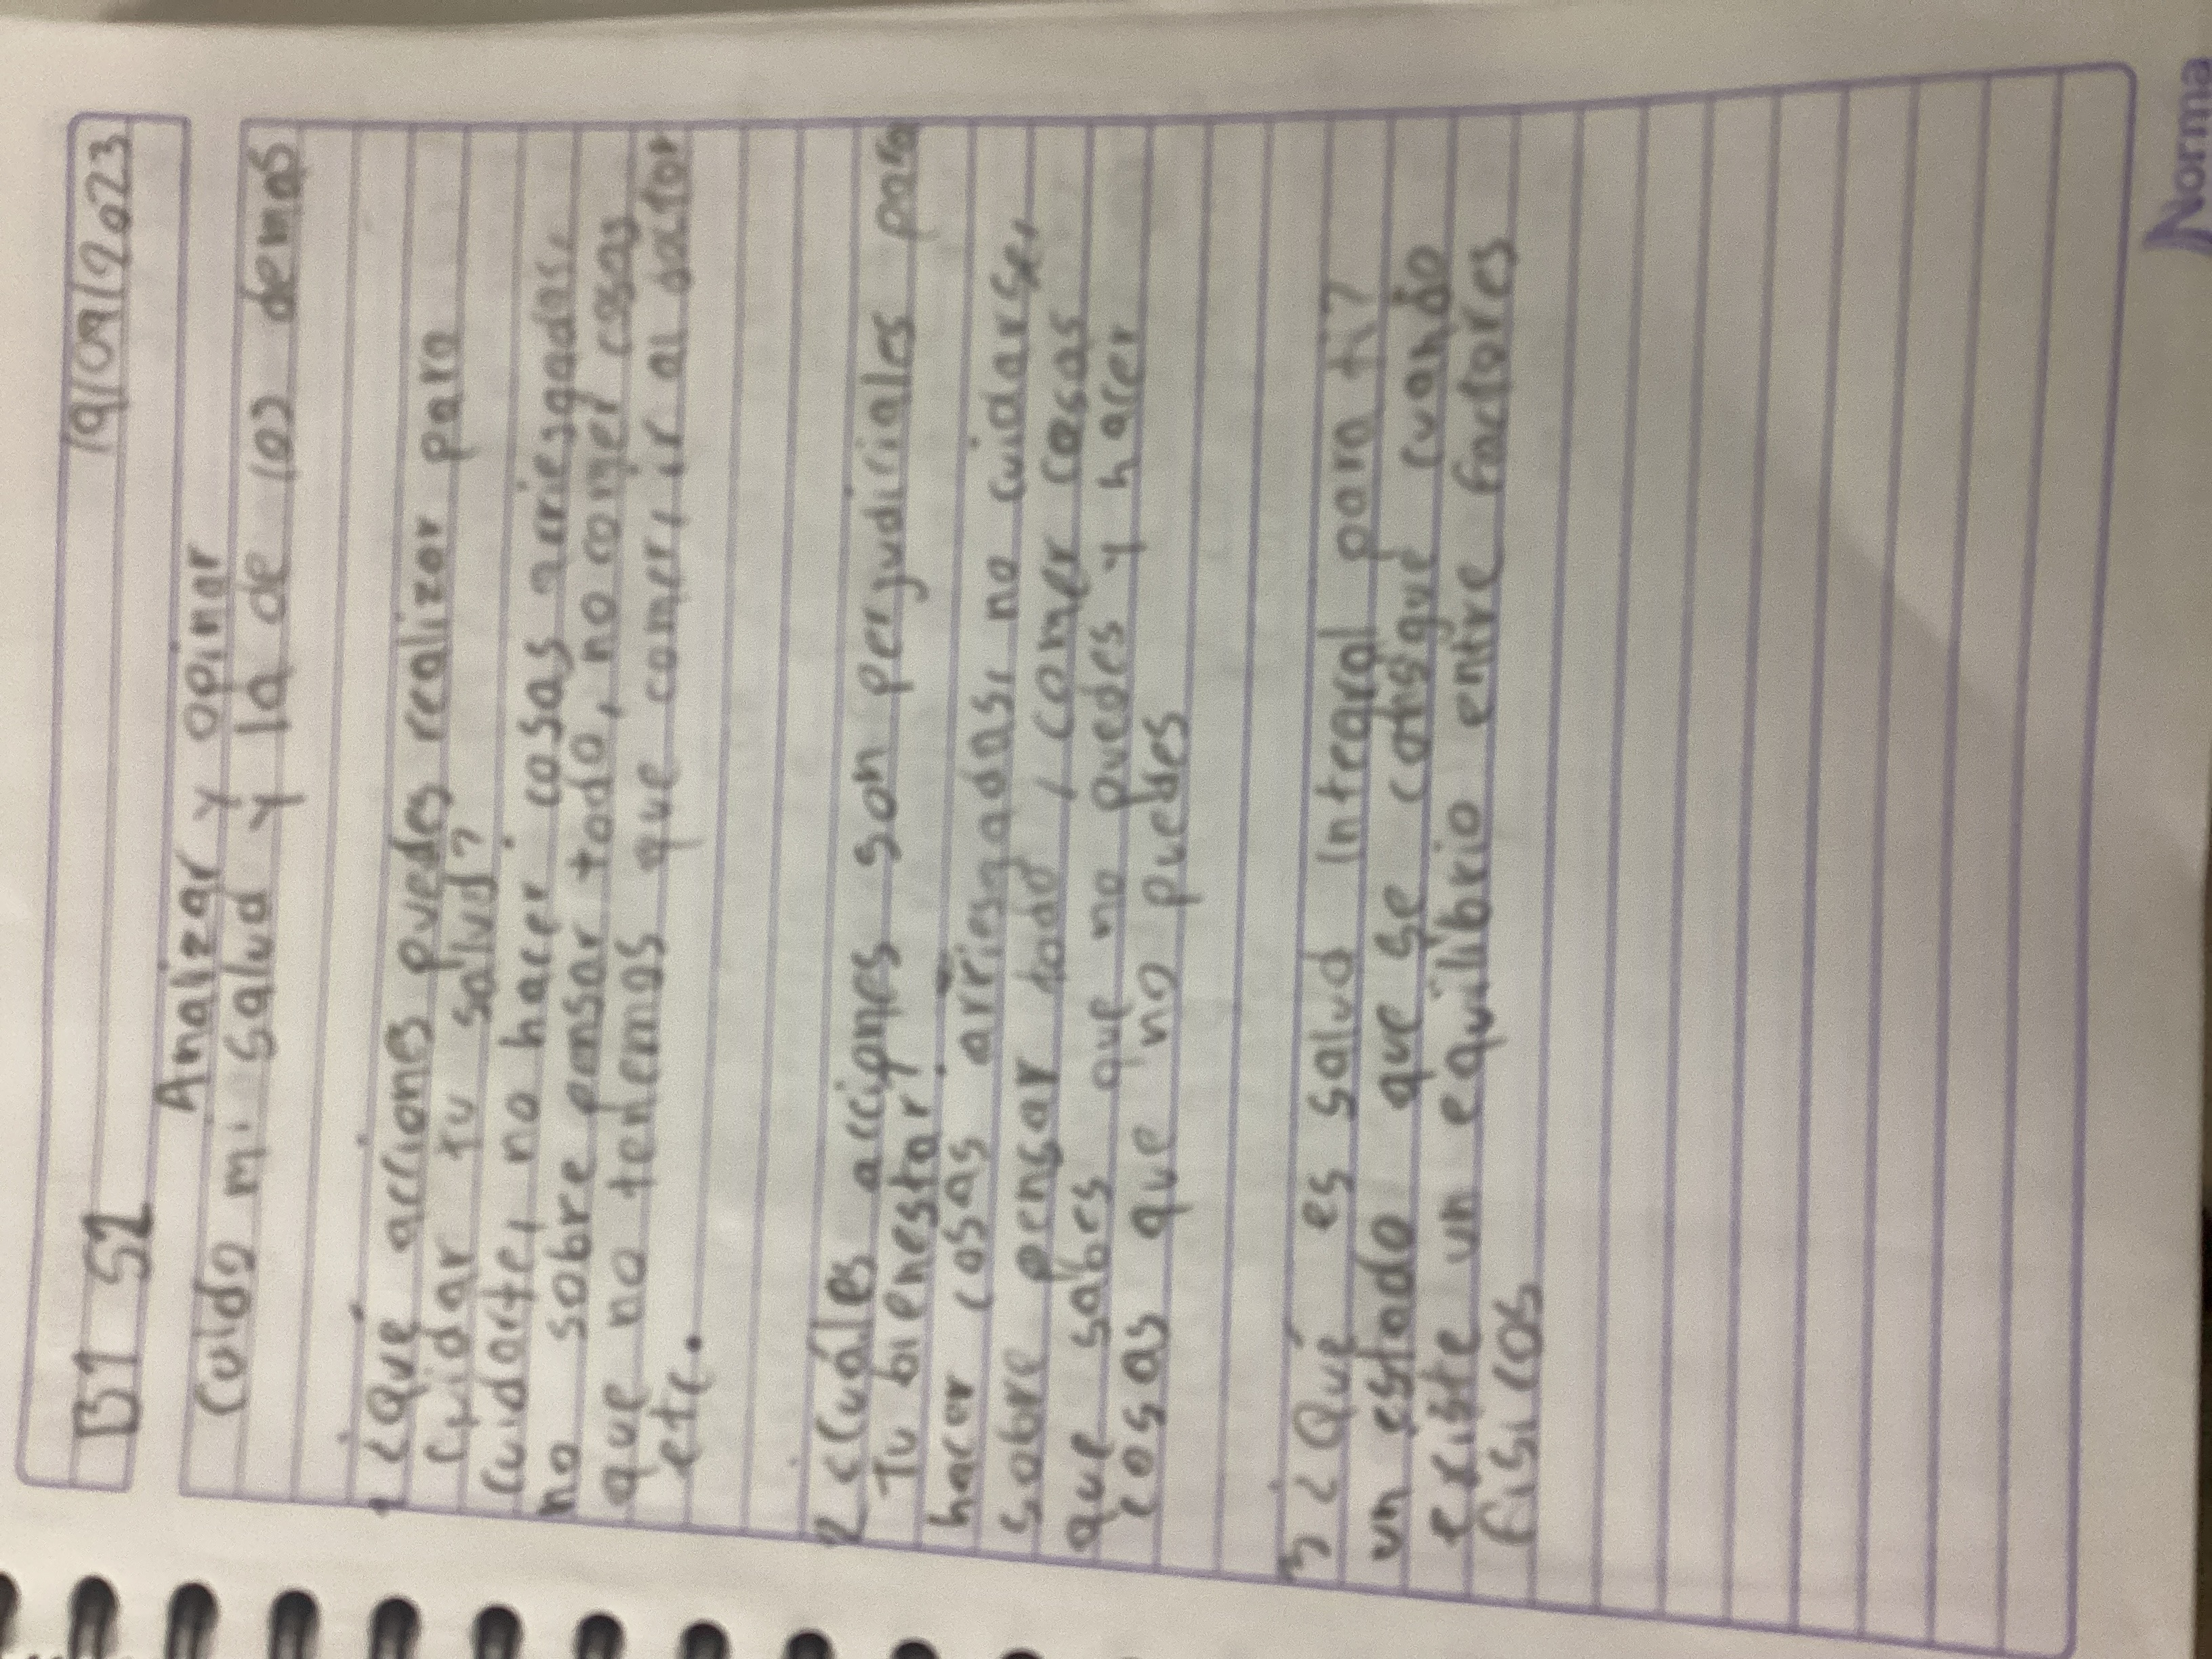 B1 S2 19/09/2023
Analizar y opinar
Cuido mi salud y la de los demas
1 ¿Qué acciones puedes realizar para
cuidar tu salud?
cuidarte, no hacer cosas arriesgadas,
no sobre pensar todo, no comer cosas
que no tenemos que comer, ir al doctor
etc.
2 ¿Cuáles acciones son perjudiciales para
tu bienestar?
hacer cosas arriesgadas, no cuidarse,
sobre pensar todo, comer cosas
que sabes que no puedes y hacer
cosas que no puedes
3 ¿Qué es salud integral para ti?
un estado que se consigue cuando
existe un equilibrio entre factores
fisicos
Norma